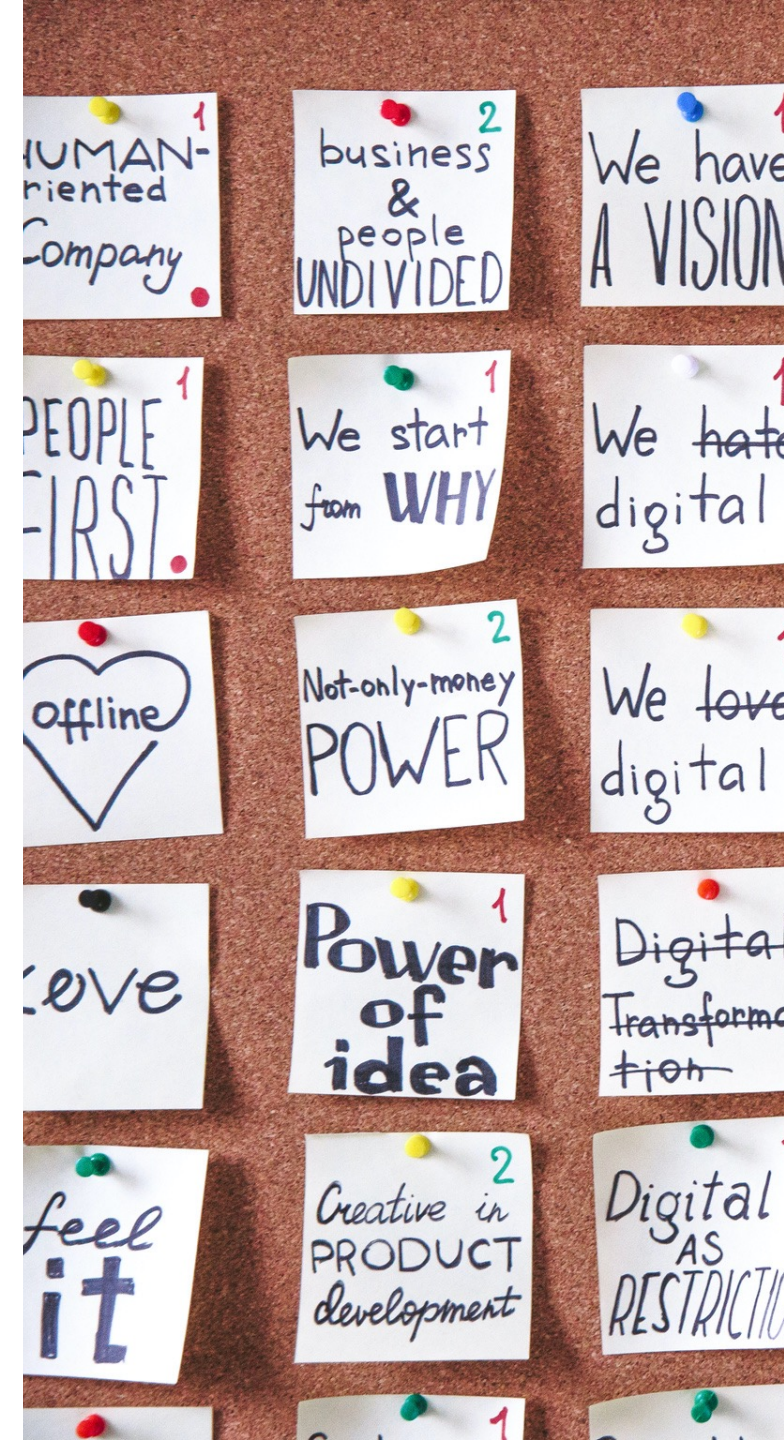 1
HUMAN-
riented
Company
2
business
&
people
UNDIVIDED
1
We have
A VISION
1
PEOPLE
FIRST
1
We start
from WHY
1
We hate
digital
offline
2
Not-only-money
POWER
We love
digital
Love
1
Power
of
idea
Digital
Transforma
tion
feel
it
2
Creative in
PRODUCT
development
Digital
AS
RESTRICTIO
1